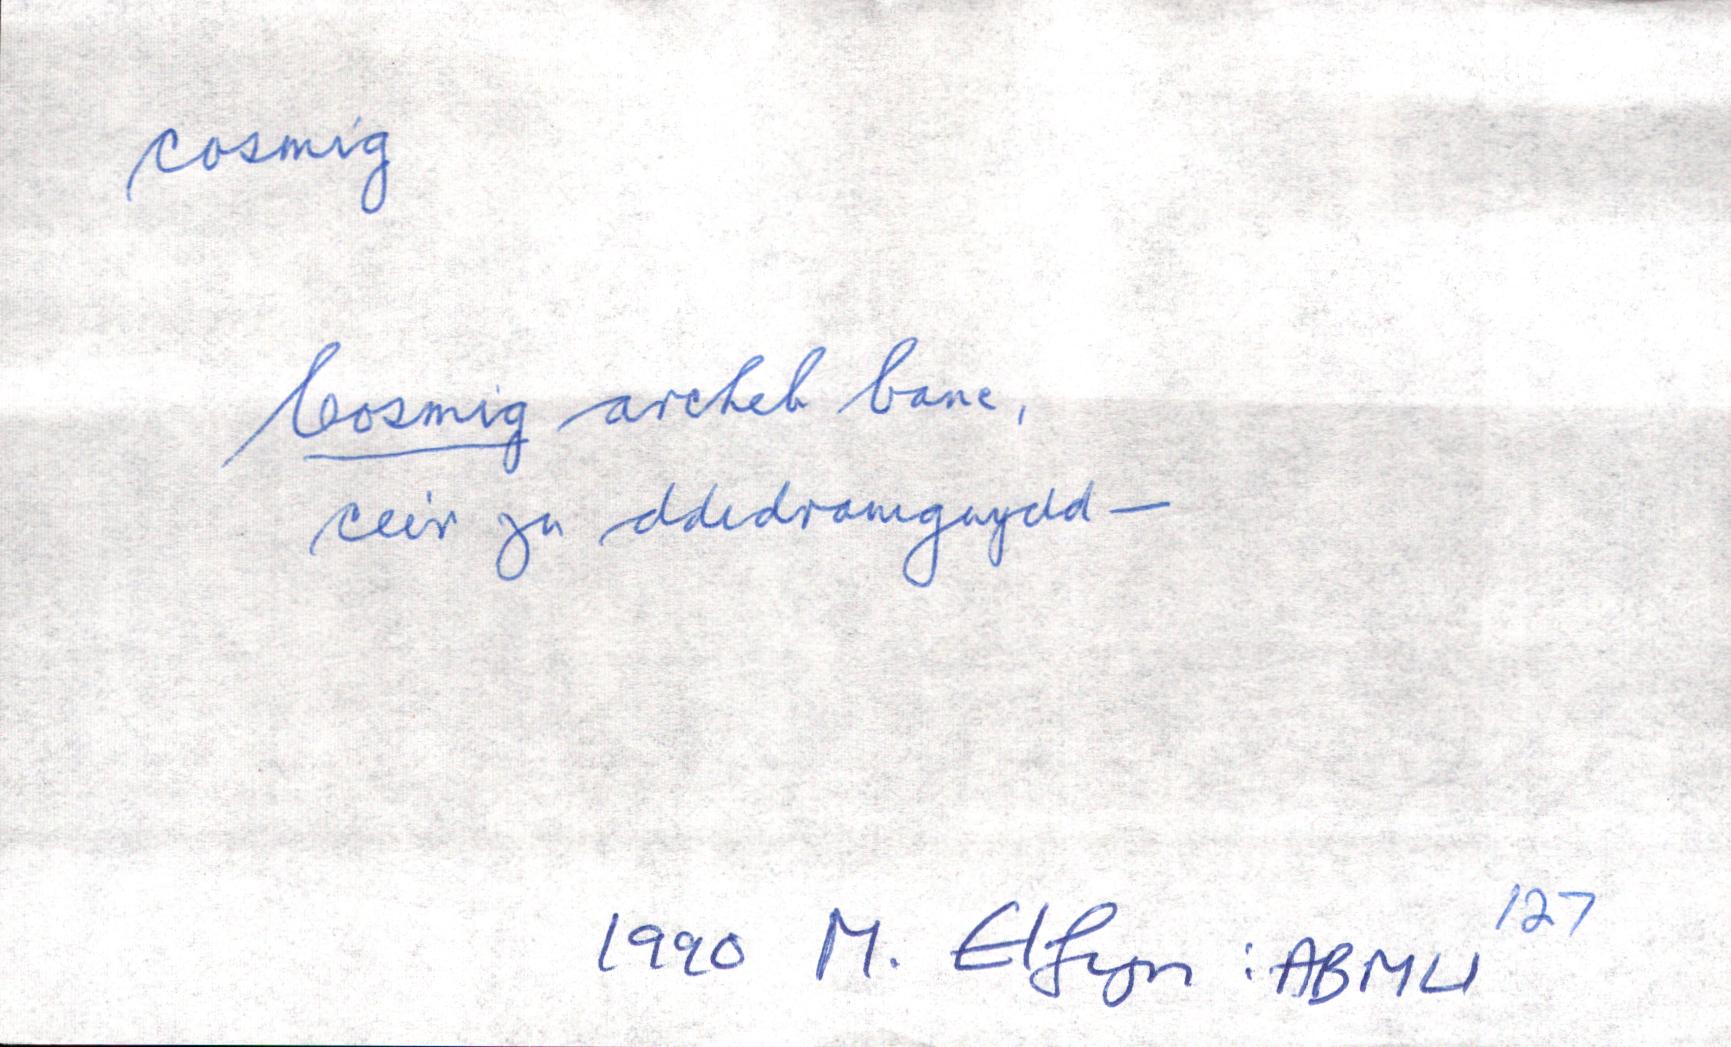 cosmig
Cosmig archeb banc,
ceir yn ddidramgwydd —
1990 M. Elfyn : ABMLl 127